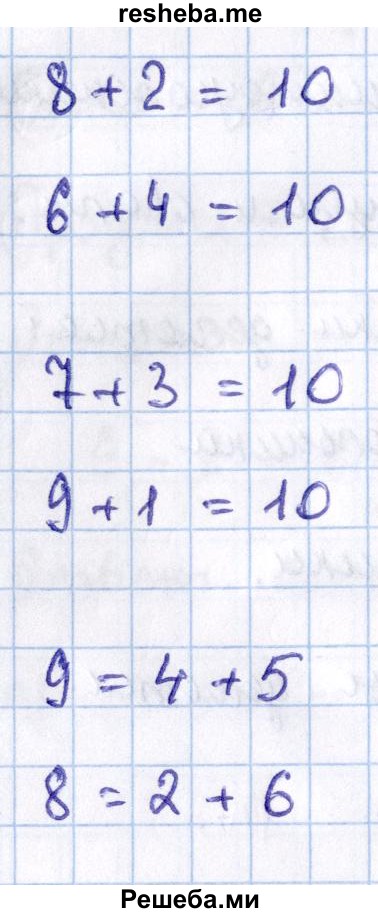 resheba.me
8 + 2 = 10
6 + 4 = 10
7 + 3 = 10
9 + 1 = 10
9 = 4 + 5
8 = 2 + 6
Решеба.ми